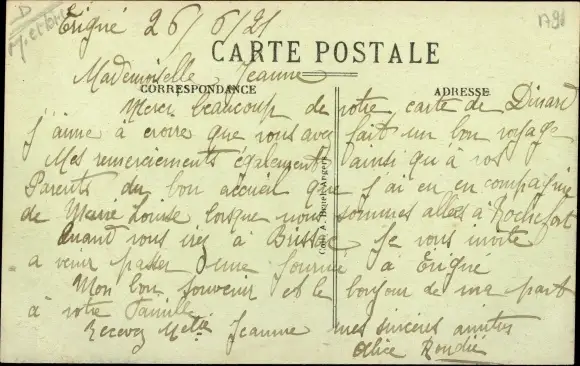 D
M. et Loire
1791
Erigné 26/6/21
CARTE POSTALE
Mademoiselle Jeanne
CORRESPONDANCE
ADRESSE
Merci beaucoup de votre carte de Dinard
j'aime à croire que vous avez fait un bon voyage
Mes remerciements également ainsi qu'à vos
Parents du bon accueil que j'ai eu en compagnie
de Marie Louise lorsque nous sommes allées à Rochefort
Quand vous irez à Brissac je vous invite
a venir passer une journée à Erigné
Mon bon souvenir et le bonjour de ma part
à votre Famille
Recevez Melle Jeanne mes sincères amitiés
Alice Rondié